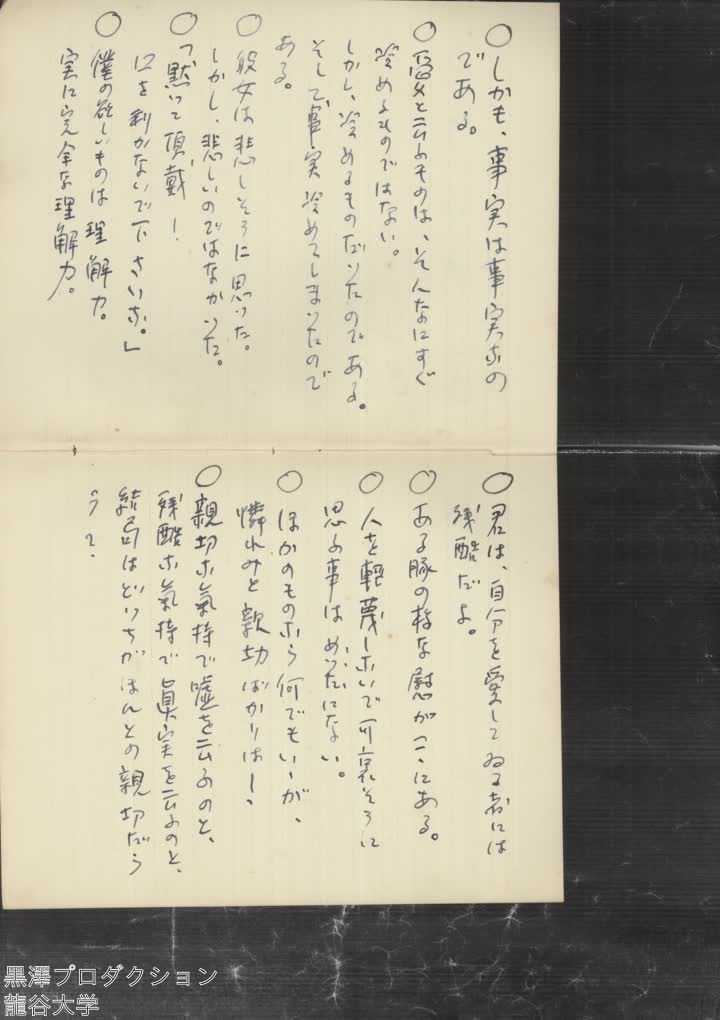 ○しかも、事実は事実なの
である。
○愛と云ふものは、そんなにすぐ
冷めるものではない。
しかし、冷めるものだつたのである。
そして事実冷めてしまつたので
ある。
○彼女は悲しそうに思つた。
しかし、悲しいのではなかつた。
○「黙つて頂戴！
口を利かないで下さいな。」
○僕の欲しいものは理解力。
実に完全な理解力。
○君は、自分を愛してゐる者には
残酷だよ。
○ある豚の様な慰がここにある。
○人を軽蔑しないで可哀そうに
思ふ事はめつたにない。
○ほかのものなら何でもいいが、
憐れみと親切ばかりはー、
○親切な氣持で嘘を云ふのと、
残酷な氣持で眞実を云ふのと、
結局はどつちがほんとの親切だら
うか。
黒澤プロダクション
龍谷大学